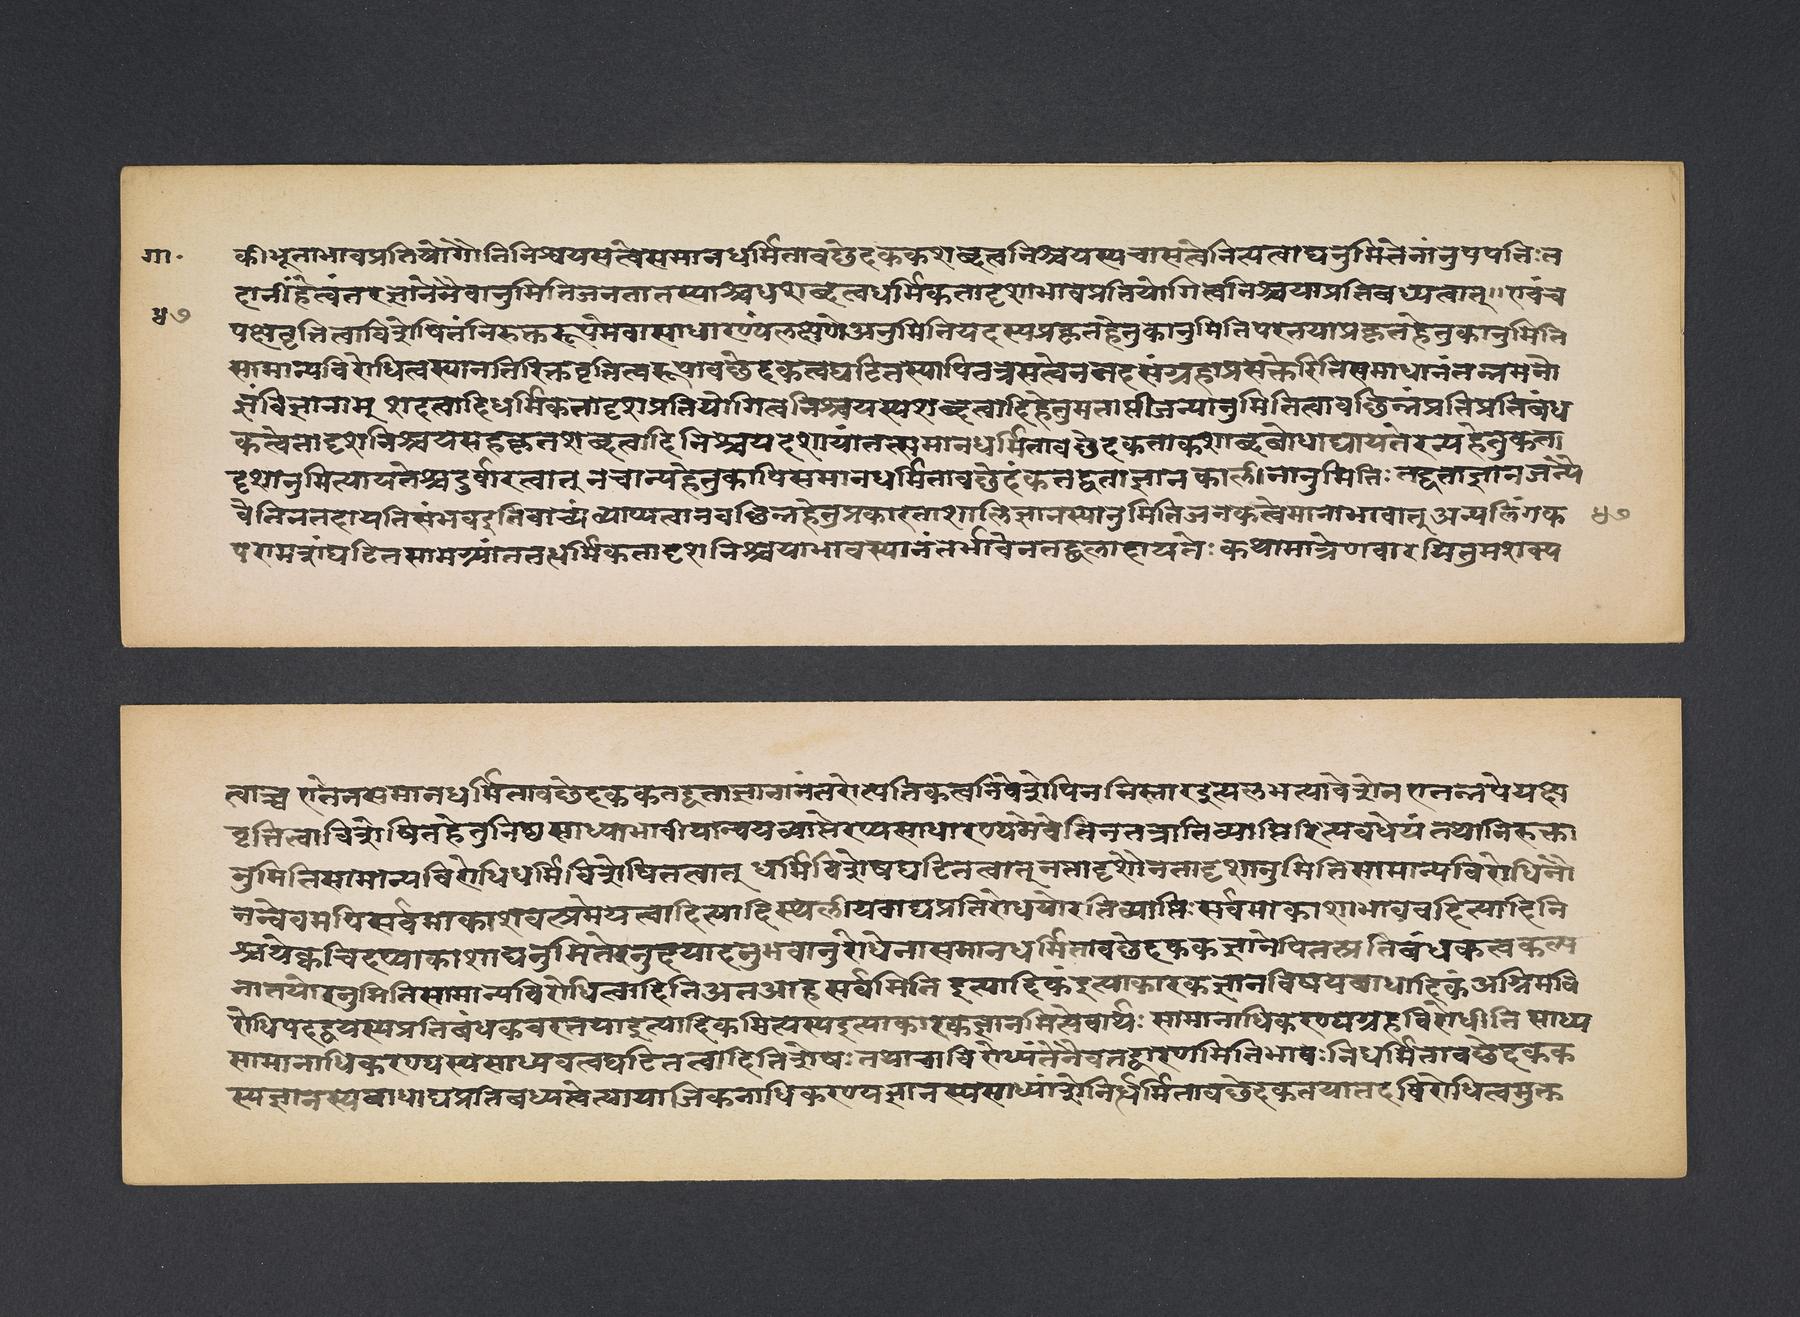 गा॰
५७
कीभूताभावप्रतियोगीतिनिश्चयसत्वेसमानधर्मितावछेदककशब्दत्वनिश्चयस्यचासत्वेनित्यत्वाद्यनुमितेर्नानुपपत्तिःत
दानींहेत्वंतरज्ञानेनैवानुमितिजननात्तस्याश्चधशब्दत्वधर्मिकतादृशाभावप्रतियोगित्वनिश्चयाप्रतिबध्यत्वात्॥एवंच
पक्षवृत्तित्वाविशेषितंनिरुक्तरूपमेवासाधारण्यंलक्षणेअनुमितियदस्यप्रकृतहेतुकानुमितिपरतयाप्रकृतहेतुकानुमिति
सामान्यविरोधित्वस्यानतिरिक्तवृत्तित्वरूपावछेदकत्वघटितस्यापितत्रसत्वेनतदसंग्रहाप्रसक्तेरितिसमाधानंतन्नमनो
ज्ञंविज्ञानाम् शदत्वादिधर्मिकतादृशप्रतियोगित्वनिश्चयस्यशब्दत्वादिहेतुमत्ताधीजन्यानुमितित्वावछिन्नंप्रतिप्रतिबंध
कत्वेतादृशनिश्चयसहकृतशब्दत्वादिनिश्चयदशायांतत्समानधर्मितावछेदकताकशाब्दबोधाद्यापत्तेरन्यहेतुकता
दृशानुमित्यापत्तेश्चदुर्वारत्वात् नचान्यहेतुकापिसमानधर्मितावछेदकतद्वत्ताज्ञानकालीनानुमितिः तद्वत्ताज्ञानजन्यै
वेतिनतदापत्तिसंभवइतिवाच्यं व्याप्यत्वानवछिन्नहेतुप्रकारताशालिज्ञानस्यानुमितिजनकत्वेमानाभावात् अन्यलिंगक
५७
परामर्शघटितसामग्र्यांतत्तधर्मिकतादृशनिश्चयाभावस्यानंतर्भावेनतद्बलादापत्तेः कथामात्रेणवारयितुमशक्य
त्वाच्च एतेनसमानधर्मितावछेदककतद्वत्ताज्ञानानंतरोत्पत्तिकत्वनिवेशेपिननिस्तारइत्यलभत्यावेशेन एतन्नयेपक्ष
वृत्तित्वाविशेषितहेतुनिष्ठसाध्याभावीयान्वयव्याप्तेरप्यसाधारण्यमेवेतिनतत्रातिव्याप्तिरित्यवधेयं तथानिरुक्ता
नुमितिसामान्यविरोधिधर्मिविशेषितत्वात् धर्मिविशेषघटितत्वात् नतादृशोनतादृशानुमितिसामान्यविरोधिनौ
नन्वेवमपिसर्वमाकाशवत्प्रमेयत्वादित्यादिस्थलीयबाधप्रतिरोधयोरतिव्याप्तिः सर्वमाकाशाभाववदित्यादिनि
श्चयेक्वचिदप्याकाशाद्यनुमितेरनुदयादनुभवानुरोधेनासमानधर्मितावछेदककज्ञानेपितत्प्रतिबंधकत्वकल्प
नात्तयोरनुमितिसामान्यविरोधित्वादितिअतआह सर्वमिति इत्यादिकंइत्याकारकज्ञानविषयबाधादिकंअग्रिमवि
रोधिपदद्वयस्यप्रतिबंधकपरतयाइत्यादिकमित्यस्यइत्याकारकज्ञानमित्येवार्थः सामानाधिकरण्यग्रहविरोधीति साध्य
सामानाधिकरण्यस्यसाध्यवत्वघटितत्वादितिशेषः तथाचाविरोध्यंतेनैवतद्वारणमितिभावः निधर्मितावछेदकक
स्यज्ञानस्यबाधाद्यप्रतिबध्यत्वेव्यायाजिकनाधिकरण्यज्ञानस्यसाध्यांशेनिर्धर्मितावछेदकतयातदविरोधित्वमुक्त